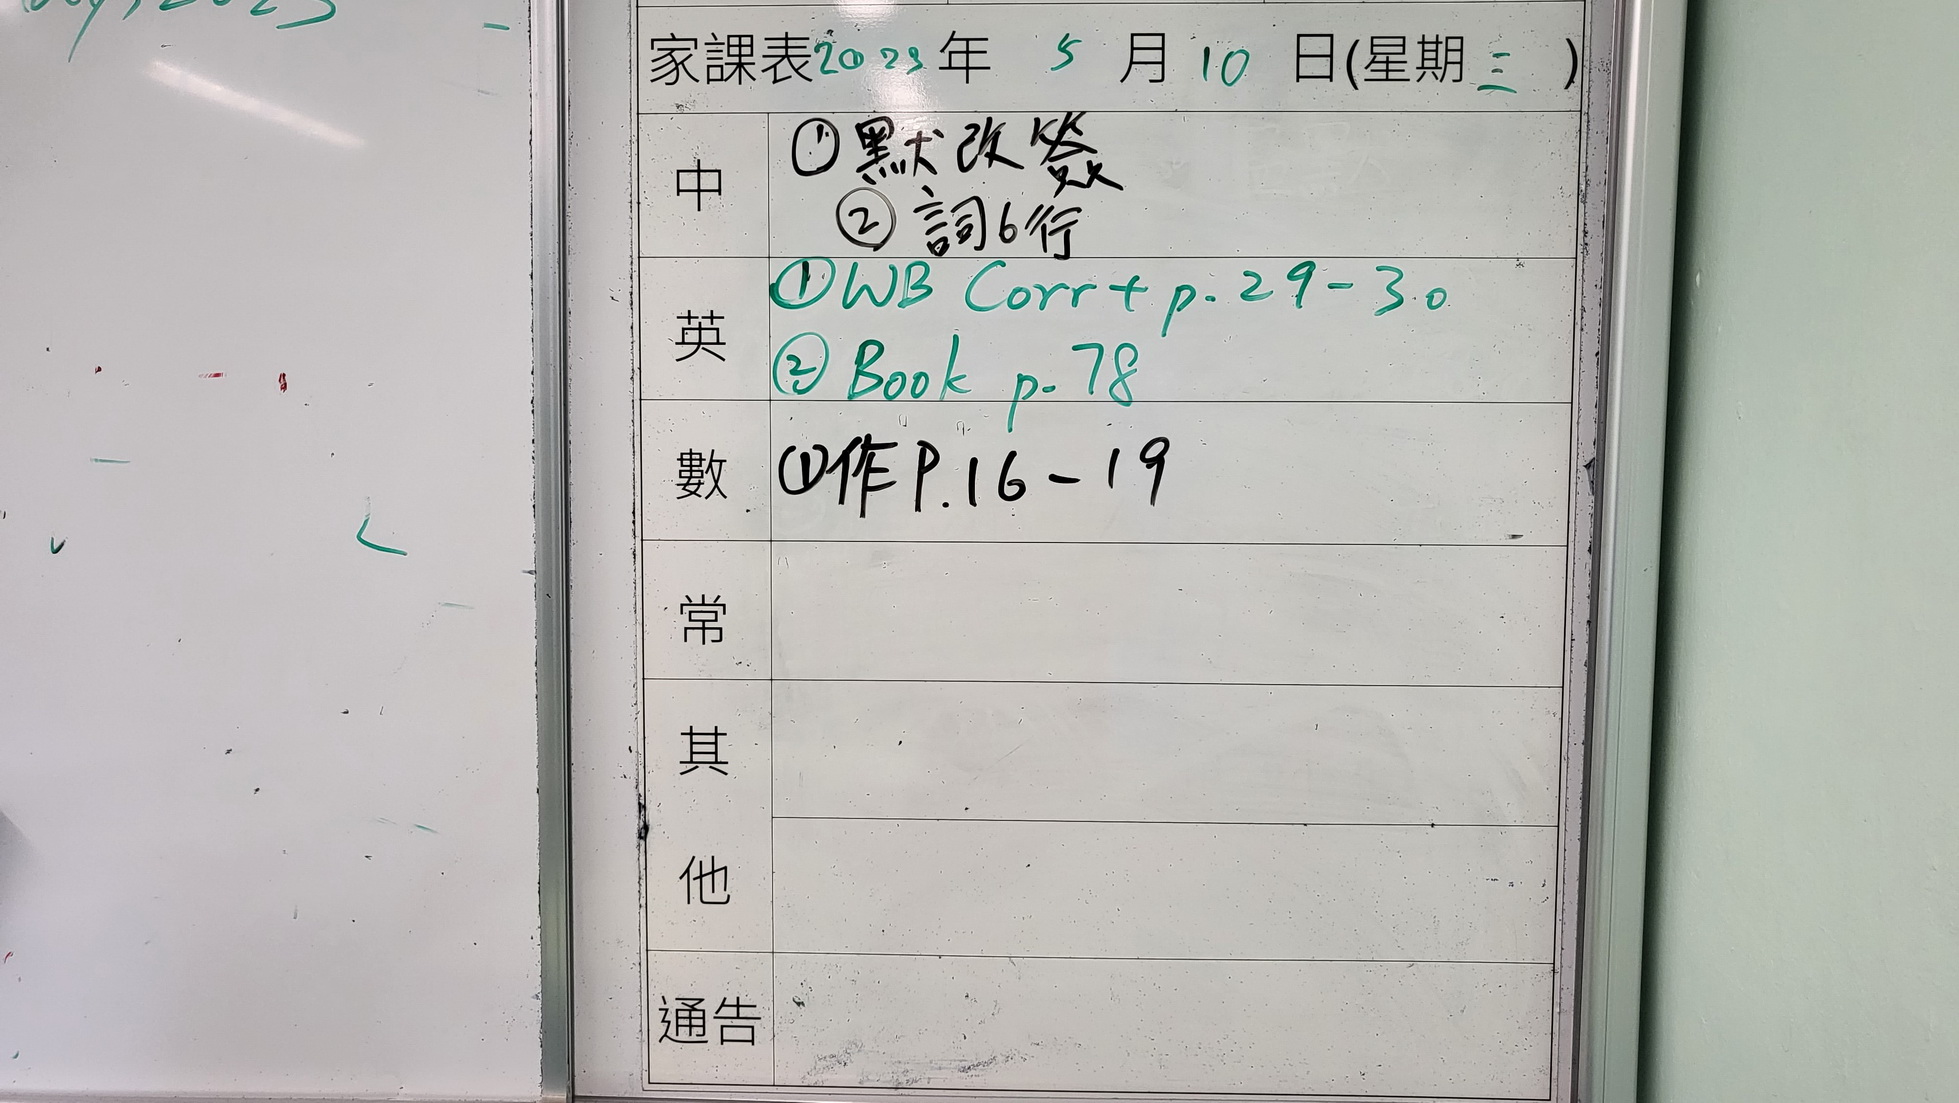 2023
家課表2023年 5 月 10 日(星期三 )
中
①默改簽
②詞6行
英
①WB Corr + p.29-30
②Book p.78
數
①作P.16-19
常
其
他
通告